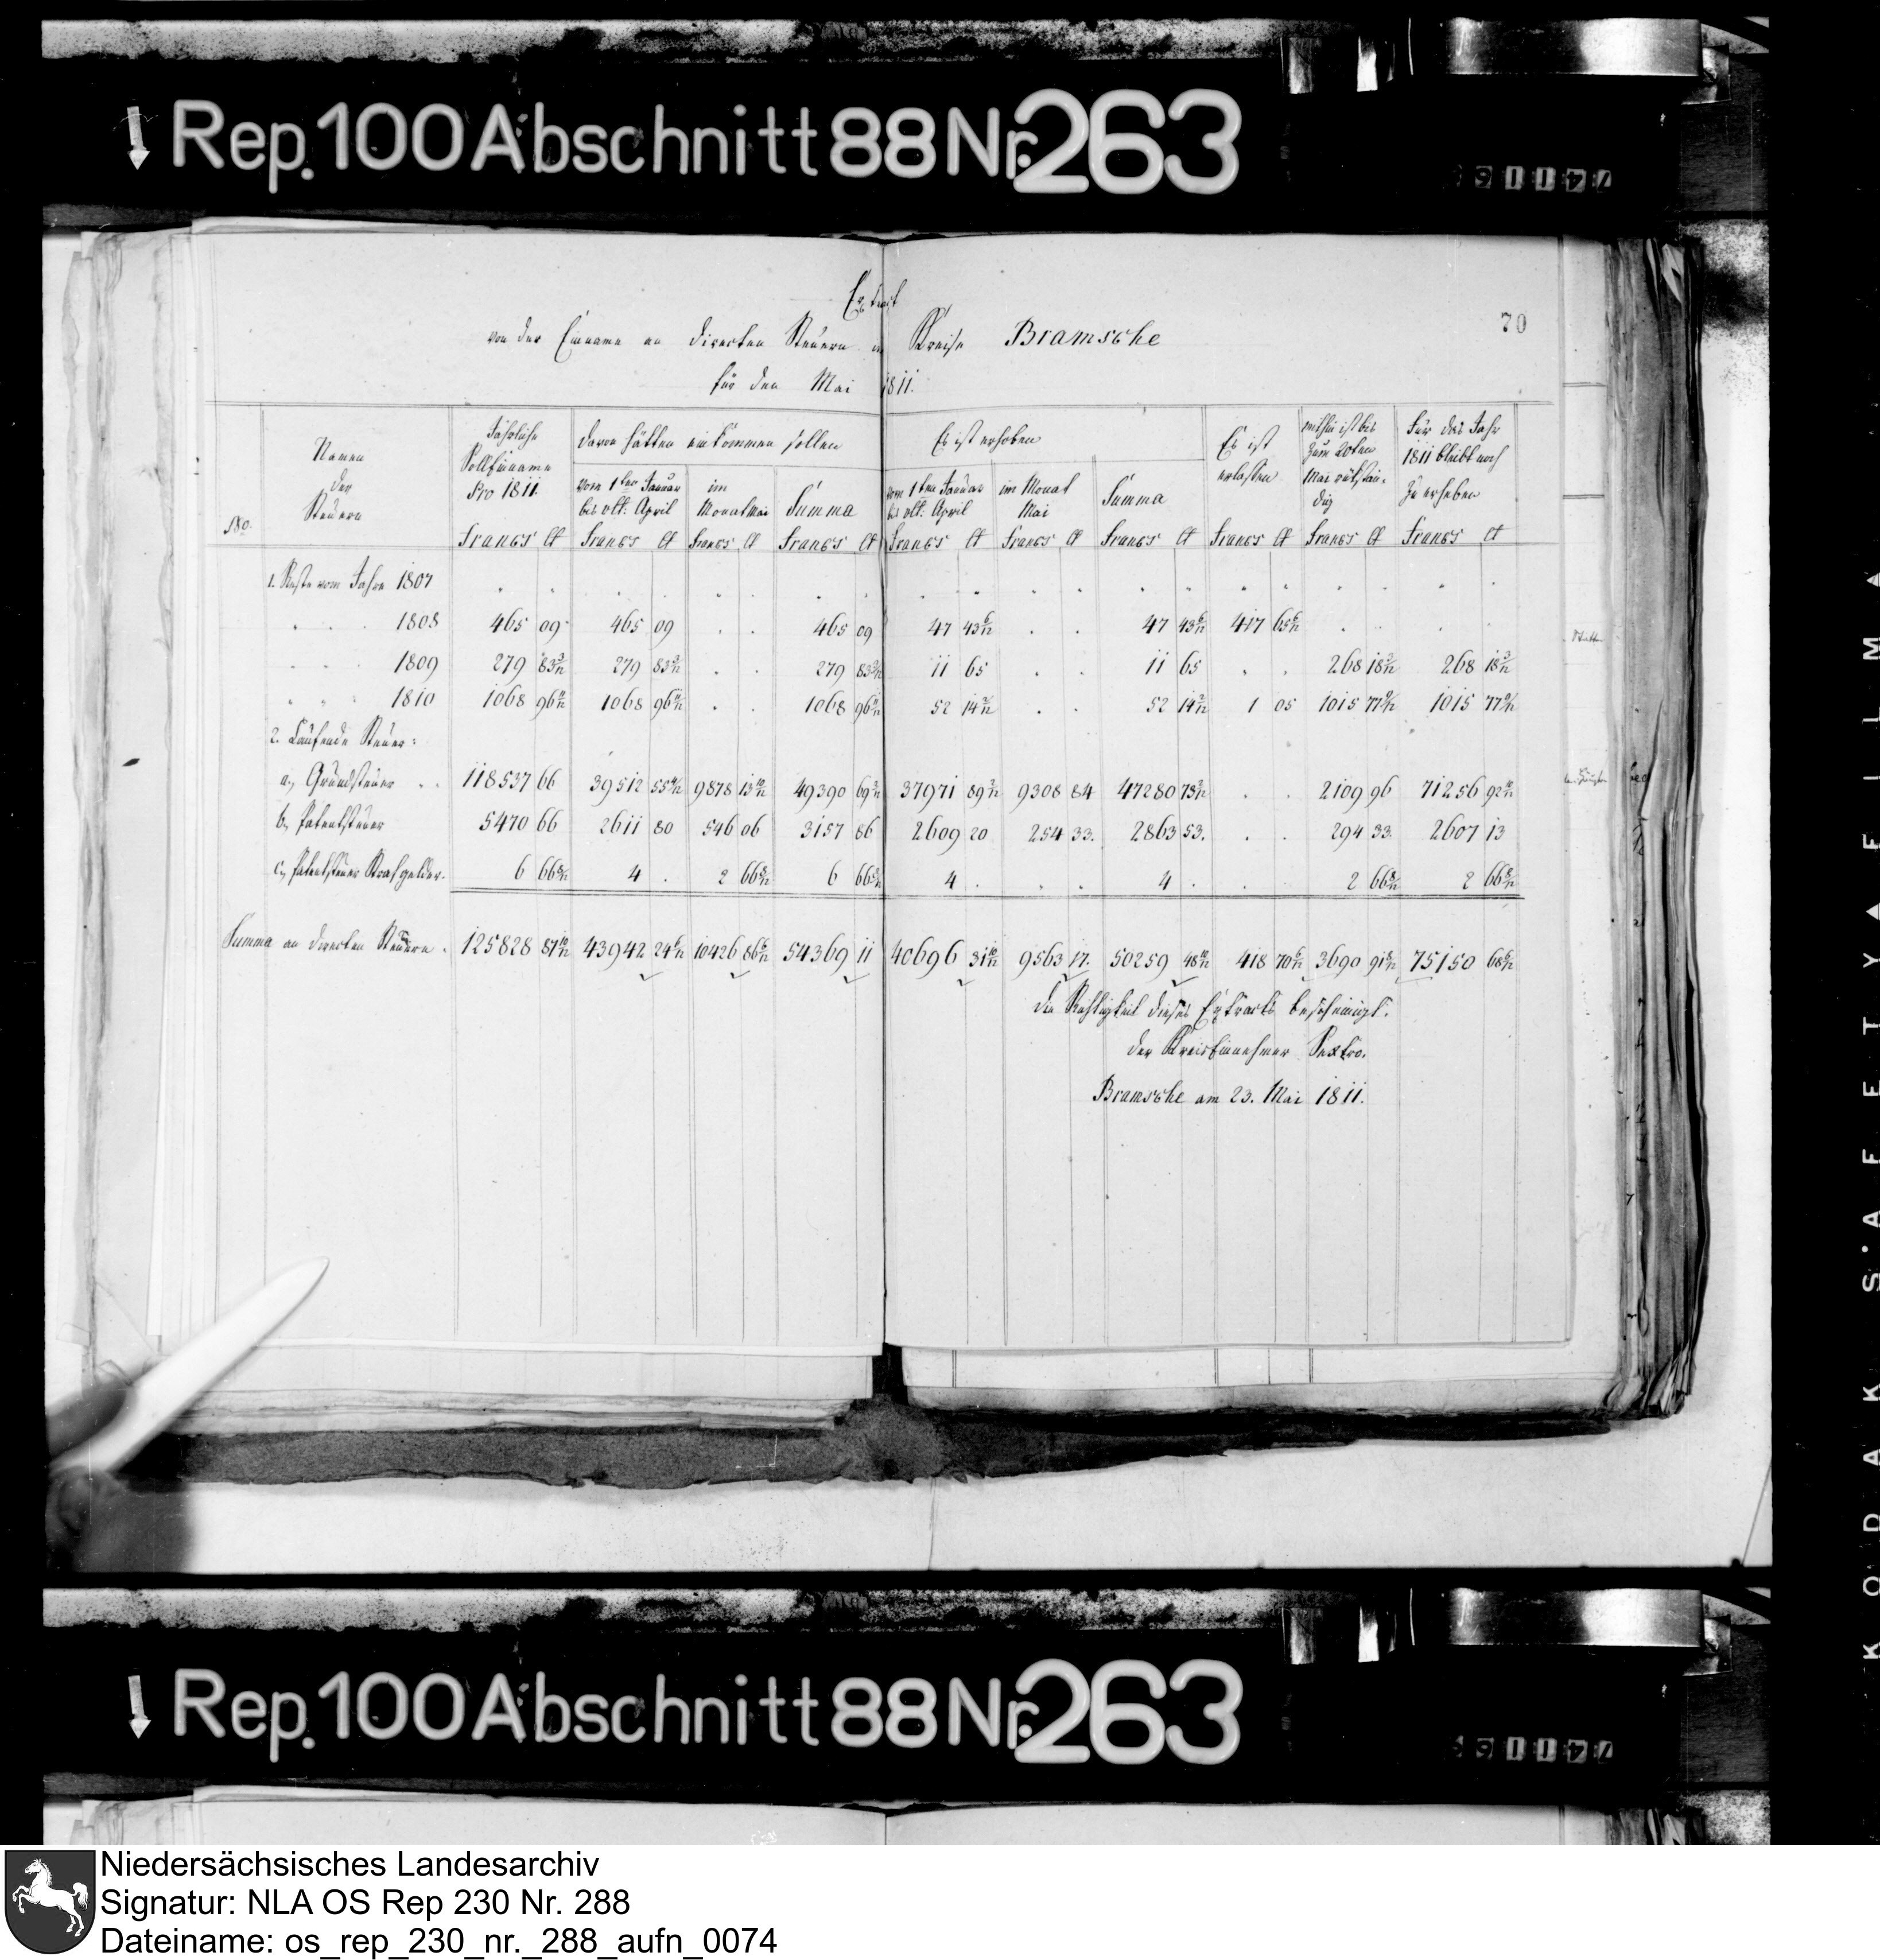 Rep. 100 Abschnitt 88 Nr. 263
Extract
70
von der Einname an directen Steuern im Kreise Bramsche
für den Mai 1811.
No. Namen der Steuern
Jährliche Solleinname pro 1811. Francs Ct
Davon hätten einkommen sollen
vom 1ten Januar bis ult: April Francs Ct
im Monat Mai Francs Ct
Summa Francs Ct
Es ist erhoben
vom 1ten Januar bis ult: April Francs Ct
im Monat Mai Francs Ct
Summa Francs Ct
Es ist erlassen Francs Ct
mithin ist bis zum 20ten Mai rükstän- dig Francs Ct
Für das Jahr 1811 bleibt noch zu erheben Francs Ct
1. Reste vom Jahre 1807
1808 465 09 465 09 . . 465 09 47 43 6/12 . . 47 43 6/12 417 65 6/12 . . . .
1809 279 83 3/12 279 83 3/12 . . 279 83 3/12 11 65 . . 11 65 . . 268 18 3/12 268 18 3/12
1810 1068 96 11/12 1068 96 11/12 . . 1068 96 11/12 52 14 2/12 . . 52 14 2/12 1 05 1015 77 9/12 1015 77 9/12
2. Laufende Steuer:
a., Grundsteuer . . 118537 66 39512 55 4/12 9878 13 10/12 49390 69 2/12 37971 89 2/12 9308 84 47280 73 2/12 . . 2109 96 71256 92 10/12
b., Patentsteuer 5470 66 2611 80 546 06 3157 86 2609 20 254 33. 2863 53. . . 294 33. 2607 13
c., Patentsteuer Strafgelder. 6 66 8/12 4 . 2 66 8/12 6 66 8/12 4 . . . 4 . . . 2 66 8/12 2 66 8/12
Summa an directen Steuern. 125828 87 10/12 43942 24 6/12 10426 86 6/12 54369 11 40696 31 10/12 9563 17. 50259 48 10/12 418 70 6/12 3690 91 8/12 75150 68 6/12
die Richtigkeit dieses Extracts bescheinigt.
der Kreiseinnehmer Sextro.
Bramsche am 23. Mai 1811.
Rep. 100 Abschnitt 88 Nr. 263
KODAK S'AFETY▲FILM▲
Niedersächsisches Landesarchiv
Signatur: NLA OS Rep 230 Nr. 288
Dateiname: os_rep_230_nr._288_aufn_0074